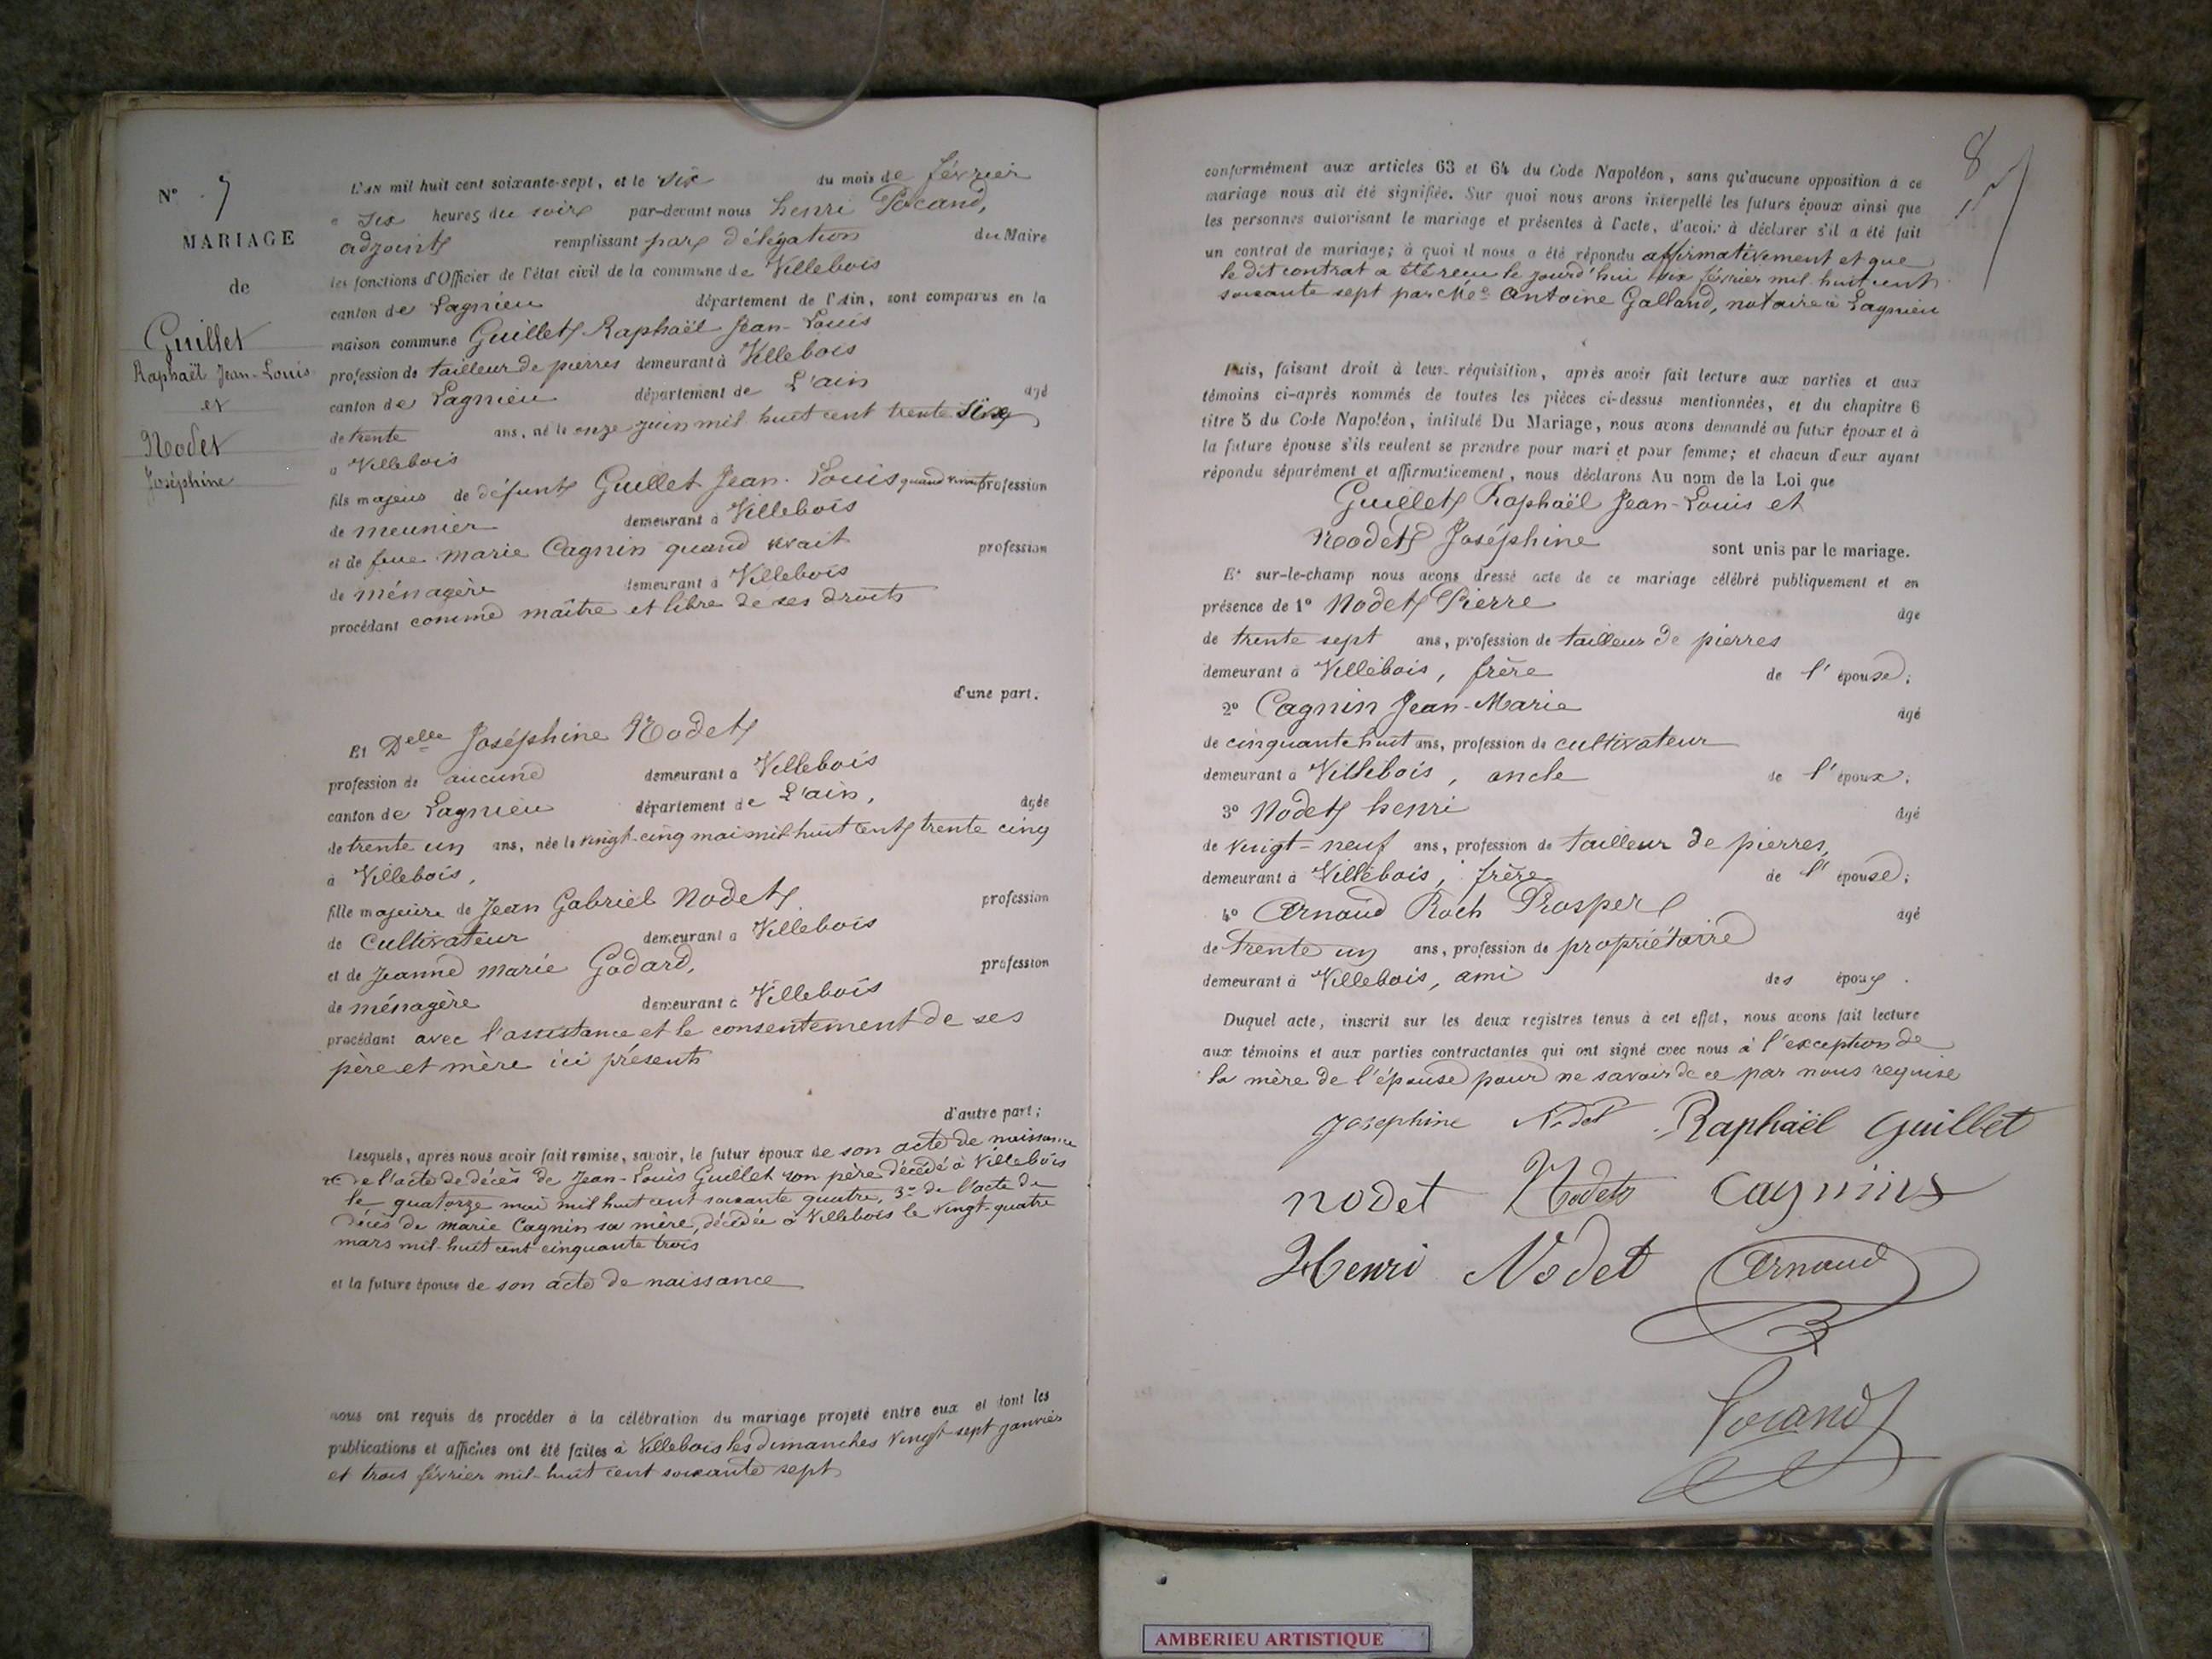 N° 7
MARIAGE
de
Guillet
Raphaël Jean-Louis
et
Nodet
Joséphine
L'AN mil huit cent soixante-sept, et le six du mois de février
a six heures du soir par-devant nous henri Pocand,
adjoint remplissant par délégation du Maire
les fonctions d'Officier de l'état civil de la commune de Villebois
canton de Lagnieu département de l'Ain, sont comparus en la
maison commune Guillet Raphaël Jean-Louis
profession de tailleur de pierres demeurant à Villebois
canton de Lagnieu département de L'ain agé
de trente ans, né le onze juin mil huit cent trente six
a Villebois
fils majeur de défunt Guillet Jean-Louis quand vivait profession
de meunier demeurant à Villebois
et de feue marie Cagnin quand vivait profession
de ménagère demeurant à Villebois
procédant comme maître et libre de ses droits
d'une part.
Et Delle Joséphine Nodet
profession de aucune demeurant a Villebois
canton de Lagnieu département de L'ain, agée
de trente un ans, née le vingt-cinq mai mil huit cent trente cinq
à Villebois,
fille majeure de Jean Gabriel Nodet profession
de Cultivateur demeurant a Villebois
et de Jeanne marie Godard, profession
de ménagère demeurant à Villebois
procédant avec l'assistance et le consentement de ses
père et mère ici présents
d'autre part;
Lesquels, après nous avoir fait remise, savoir, le futur époux de son acte de naissance
2° de l'acte de décès de Jean-Louis Guillet son père décédé à Villebois
le quatorze mai mil huit cent soixante quatre, 3° de l'acte de
décès de marie Cagnin sa mère, décédée à Villebois le vingt-quatre
mars mil-huit cent cinquante trois
et la future épouse de son acte de naissance
nous ont requis de procéder à la célébration du mariage projeté entre eux et dont les
publications et affiches ont été faites à Villebois les dimanches vingt-sept janvier
et trois février mil-huit cent soixante sept
8
conformément aux articles 63 et 64 du Code Napoléon, sans qu'aucune opposition à ce
mariage nous ait été signifiée. Sur quoi nous avons interpellé les futurs époux ainsi que
les personnes autorisant le mariage et présentes à l'acte, d'avoir à déclarer s'il a été fait
un contrat de mariage; à quoi il nous a été répondu affirmativement et que
le dit contrat a été reçu le jourd'hui six février mil huit cent
soixante sept par Me Antoine Galland, notaire à Lagnieu
Puis, faisant droit à leur réquisition, après avoir fait lecture aux parties et aux
témoins ci-après nommés de toutes les pièces ci-dessus mentionnées, et du chapitre 6
titre 5 du Code Napoléon, intitulé Du Mariage, nous avons demandé au futur époux et à
la future épouse s'ils veulent se prendre pour mari et pour femme; et chacun d'eux ayant
répondu séparément et affirmativement, nous déclarons Au nom de la Loi que
Guillet Raphaël Jean-Louis et
Nodet Joséphine sont unis par le mariage.
Et sur-le-champ nous avons dressé acte de ce mariage célébré publiquement et en
présence de 1° Nodet Pierre âge
de trente sept ans, profession de tailleur de pierres
demeurant à Villebois, frère de l'épouse;
2° Cagnin Jean-Marie âgé
de cinquante huit ans, profession de cultivateur
demeurant à Villebois, oncle de l'époux;
3° Nodet henri âgé
de vingt-neuf ans, profession de tailleur de pierres,
demeurant à Villebois, frère de l'épouse;
4° Arnaud Roch Prosper âgé
de trente un ans, profession de propriétaire
demeurant à Villebois, ami des époux.
Duquel acte, inscrit sur les deux registres tenus à cet effet, nous avons fait lecture
aux témoins et aux parties contractantes qui ont signé avec nous à l'exception de
la mère de l'épouse pour ne savoir de ce par nous requise
Josephine Nodet Raphaël Guillet
nodet Nodet Cagnin
Henri Nodet Arnaud
Pocand
AMBERIEU ARTISTIQUE